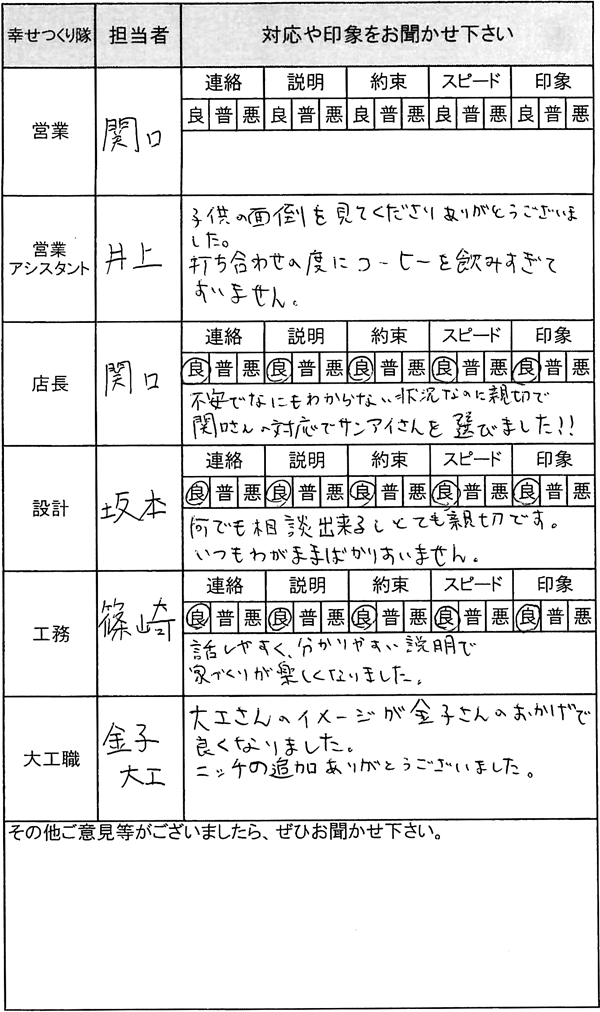 幸せつくり隊 担当者 対応や印象をお聞かせ下さい
営業 関口
連絡 説明 約束 スピード 印象
良 普 悪 良 普 悪 良 普 悪 良 普 悪 良 普 悪
営業
アシスタント
井上
子供の面倒を見てくださりありがとうございま
した。
打ち合わせの度にコーヒーを飲みすぎて
すいません。
店長 関口
連絡 説明 約束 スピード 印象
良 普 悪 良 普 悪 良 普 悪 良 普 悪 良 普 悪
不安でなにもわからない状況なのに親切で
関口さんの対応でサンアイさんを選びました!!
設計 坂本
連絡 説明 約束 スピード 印象
良 普 悪 良 普 悪 良 普 悪 良 普 悪 良 普 悪
何でも相談出来るしとても親切です。
いつもわがままばかりすいません。
工務 篠崎
連絡 説明 約束 スピード 印象
良 普 悪 良 普 悪 良 普 悪 良 普 悪 良 普 悪
話しやすく、分かりやすい説明で
家づくりが楽しくなりました。
大工職
金子
大工
大工さんのイメージが金子さんのおかげで
良くなりました。
ニッチの追加ありがとうございました。
その他ご意見等がございましたら、ぜひお聞かせ下さい。